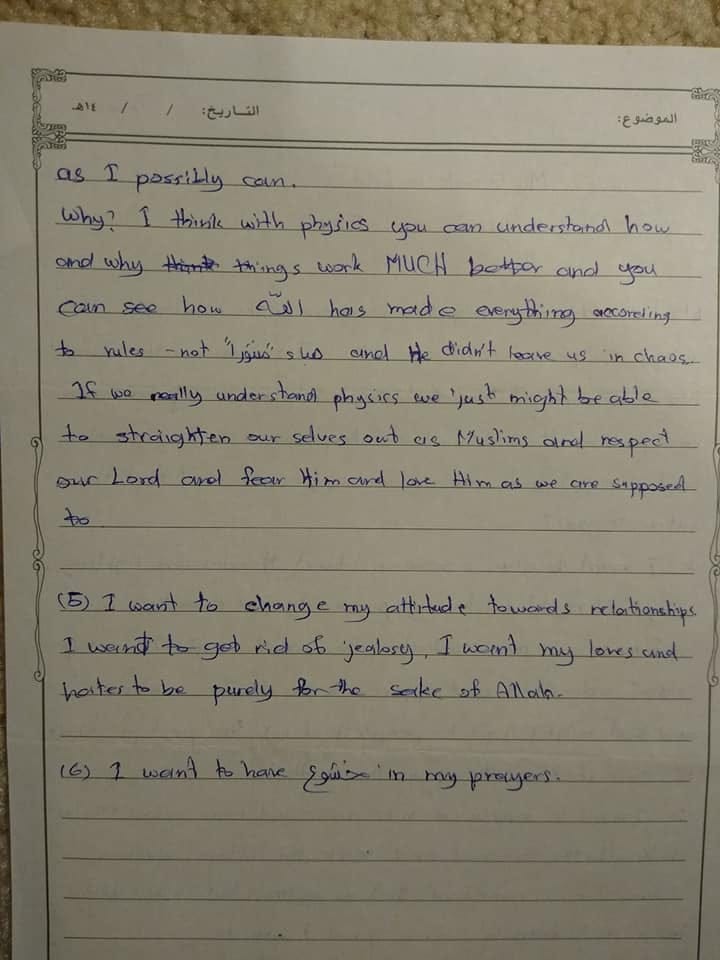 الموضوع: التاريخ: / / ١٤هـ
as I possibly can.
Why? I think with physics you can understand how
and why think things work MUCH better and you
can see how الله has made everything according
to rules - not هباء "منثورا" and He didn't leave us in chaos.
If we really understand physics we just might be able
to straighten our selves out as Muslims and respect
our Lord and fear Him and love Him as we are supposed
to
(5) I want to change my attitude towards relationships.
I want to get rid of jealosy, I want my loves and
hates to be purely for the sake of Allah.
(6) I want to have خشوع in my prayers.